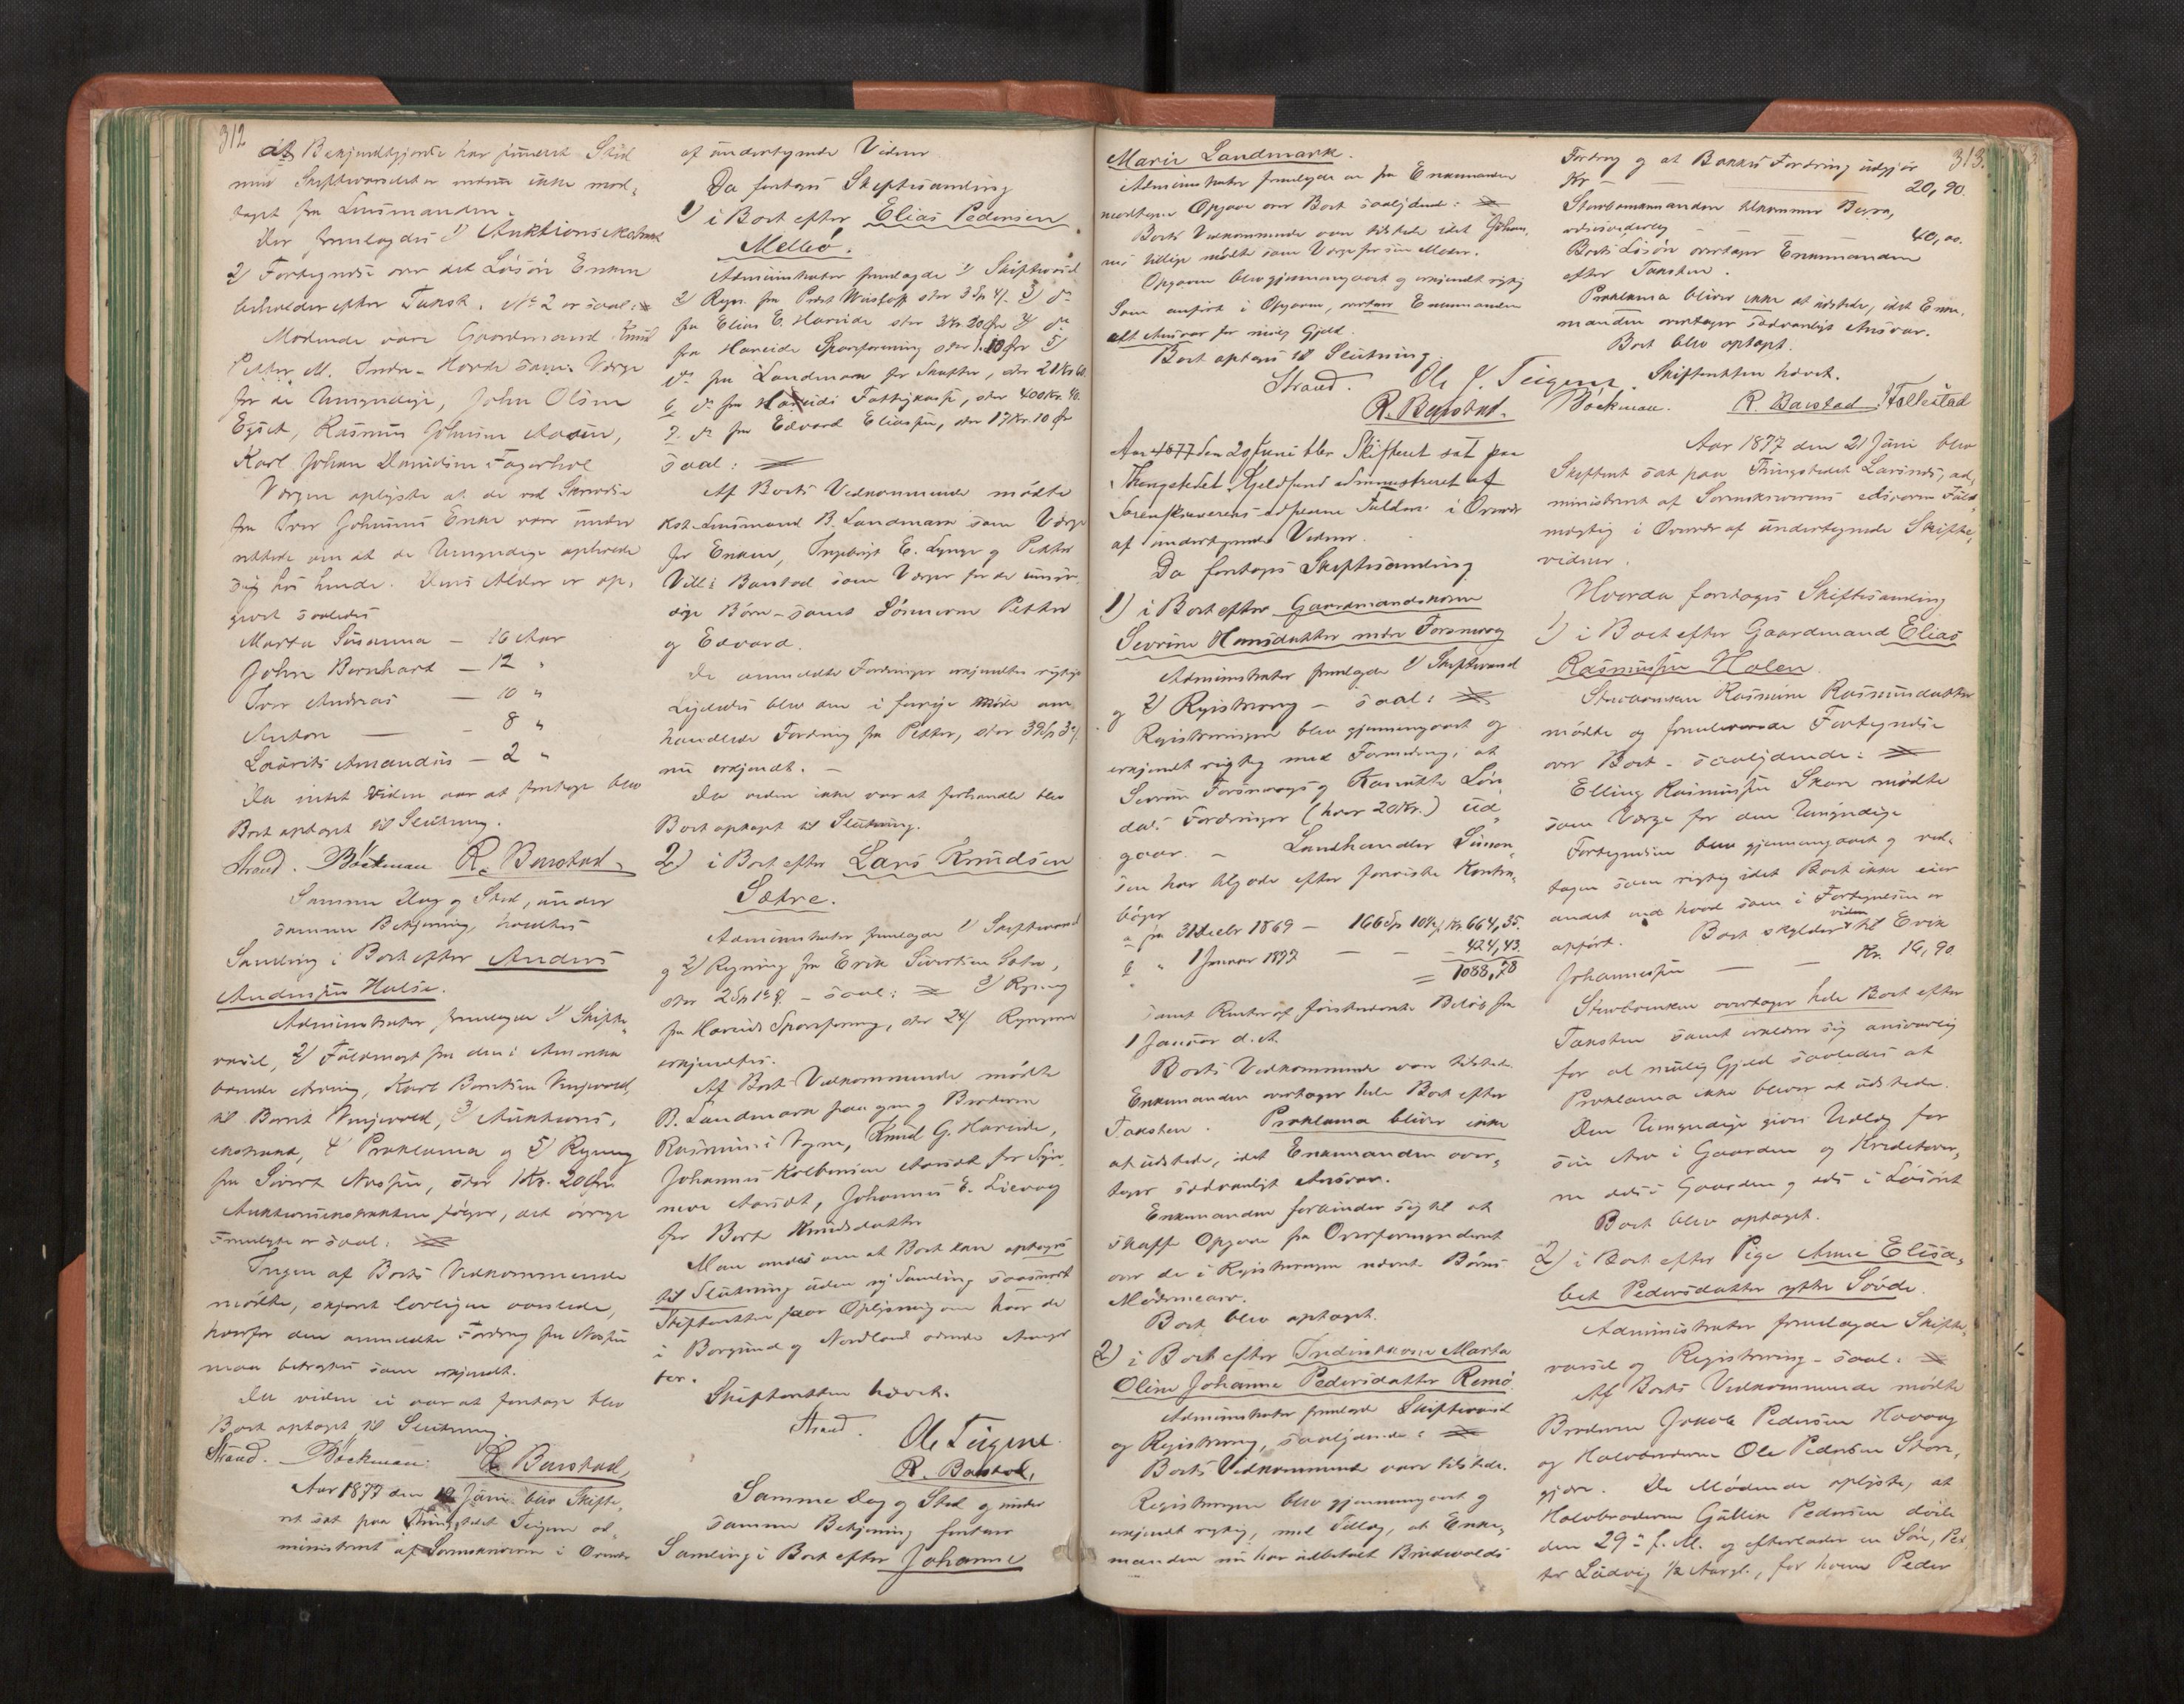 312
at Bekjendtgjørelse har funnet Sted
men Skiftevarselet er endnu ikke mod-
taget fra Lensmanden.
Der fremlagdes 1) Auktions
2) Fortegnelse over det Løsøre Enken
beholder efter Takst. No 2 er saal:
Mødende vare Gaardmand Knud
Petter M. Indre-Horde som Værge
for de Umyndige, John Olsen
Egset, Rasmus Johnsen Aasen,
Karl Johan Danielsen Fagerhol
Værgen oplyste at de ved Skrivelse
fra Iver Johnsens Enke var under
rettede om at de Umyndige opholde
sig hos hende. Deres Alder er op-
givet saaledes
Marta Susanna - 16 Aar
John Bernhard - 12 "
Iver Andreas - 10 "
Anton - 8 "
Laurits Amandus - 2 "
Da intet viden var at foretage blev
Boet optaget til Slutning.
Strand. Böckman R. Barstad
Samme Dag og Sted, under
samme Betjening, holdtes
Samling i Boet efter Anders
Andersen Halse.
Administrator fremlagde 1) Skifte-
varsel, 2) Fuldmagt fra den i Amerika
boende Arving, Karl Berntsen
til Bernt 3) Auktions-
ekstrakt, 4) Proklama og 5) Regning
fra Sivert Aasen, stor 1 Kr. 20 Øre.
Auktionsekstrakten følger, det øvrige
Fremlagte er saal:
Ingen af Boets Vedkommende
mødte, skjønt lovligen varslede,
hvorfor den anmeldte Fordring fra Aasen
maa betragtes som erkjendt.
Da viden ei var at foretage blev
Boet optaget til Slutning.
Strand. Böckman. R. Barstad
Aar 1877 den 19 Juni blev Skifte-
ret sat paa Thingstedet Teigene ad-
ministreret af Sorenskriveren i Overvær
af undertegnede Vidner
Da foretoges Skiftesamling
1) i Boet efter Elias Pedersen
Melbø.
Administrator fremlagde 1) Skiftevarsel
2) Regn. fra Prost stor 3 Sp 4/ 3) do
fra Elias E. Hareide stor 3 Kr 20 Øre 4) do
fra Hareids Spareforening stor 5)
do fra Landmark for Skatter, stor 21 Kr
6 do fra Hareids Fattigkasse, stor 400 Kr.
7. do fra Edvard Eliassen, stor 17 Kr. 10 Øre
saal:
Af Boets Vedkommende mødte
Kst. Lensmand B. Landmark som Værge
for Enken, Ingebrigt E. Lynge og Petter
Barstad som Værger for de umyn-
dige Børn - samt Sønnerne Petter
og Edvard.
De anmeldte Fordringer erkjendtes rigtige
Ligeledes blev den i forrige Møde om-
handlede Fordring fra Petter, stor
nu erkjendt. -
Da viden ikke var at forhandle blev
Boet optaget til Slutning.
2) i Boet efter Lars Knudsen
Sætre.
Administrator fremlagde 1) Skiftevarsel
og 2) Regning fra Erik Sivertsen Sætre,
stor 2 Sp - saal: 3) Regning
fra Hareids Spareforening, stor 24/ Regningerne
erkjendtes.
Af Boets Vedkommende mødte
B. Landmark paa egne og Broderen
Rasmus's Vegne, Knud G. Hareide,
Johannes Kolbensen Aarsæt for
Aarsæt, Johannes E. Lievaag
for Berte Knudsdatter
Man enedes om at Boet kan optages
til Slutning uden ny Samling saasnart
Skifteretten faar Oplysning om hvor de
i Borgund og Nordland boende Arvinger
bor.
Skifteretten hævet.
Strand. Ole Teigene.
R. Barstad.
Samme Dag og Sted og under
samme Betjening foretoges
Samling i Boet efter Johanne
313.
Marie Landmark.
Administrator fremlagde en fra Enkemanden
modtagen Opgave over Boet saalydende:
Boets Vedkommende vare tilstede idet Johan-
nes tillige mødte som Værge for sin Moder.
Opgaven blev gjennemgaaet og erkjendt rigtig
Som anført i Opgaven, overtar Enkemanden
alt Ansvar for mulig Gjeld.
Boet optages til Slutning
Strand. Ole J. Teigene
R. Barstad.
Aar 1877 den 20 Juni blev Skifteret sat paa
Thingstedet Kjeldsund administreret af
Sorenskriverens edsvorne Fuldm. i Overvær
af undertegnede Vidner.
Da foretoges Skiftesamling
1) i Boet efter Gaardmandskone
Sevrine Hansdatter nedre Forsnævog
Administrator fremlagde 1) Skiftevarsel
og 2) Registrering - saal:
Registreringen blev gjennemgaaet og
erkjendt rigtig med Formening, at
Sevrine Forsnavogs og Løn-
dals Fordringer (hver 20 Kr.) ud-
gaar. - Landhandler Simon-
sen har tilgode efter foreviste Kontra-
bøger
a fra 31 Decbr 1869 - 166 Sp 10 / Kr. 664,35.
b " 1 Januar 1877 - - 424,43.
= 1088,78
samt Renter af førstnævnte Beløb fra
1 Januar d. A.
Boets Vedkommende vare tilstede
Enkemanden overtager hele Boet efter
Taksten. Proklama bliver ikke
at udstede, idet Enkemanden over-
tager sædvanligt Ansvar.
Enkemanden forbinder sig til at
skaffe Opgave fra Overformynderiet
over de i Registreringen nævnte Børns
Mødrenearv.
Boet blev optaget.
2) i Boet efter Inderstkone Marta
Oline Johanne Pedersdatter Remø
Administrator fremlagde Skiftevarsel
og Registrering, saalydende:
Boets Vedkommende vare tilstede.
Registreringen blev gjennemgaaet og
erkjendt rigtig, med Tillæg, at Enke-
manden nu har udbetalt Brudevolds
Fordring og at Bankens Fordring udgjør
Kr - 20,90.
Sterboenkemanden tilkommer Begra-
velsesudlæg - 40,00.
Boets Løsøre overtager Enkemanden
efter Taksten.
Proklama bliver ikke at udstede, idet Enke-
manden overtager sædvanligt Ansvar.
Boet blev optaget.
Skifteretten hævet.
Böckman. R. Barstad Follestad
Aar 1877 den 21 Juni blev
Skifteret sat paa Thingstedet Larsnes, ad-
ministreret af Sorenskriverens edsvorne Fuld-
mægtig i Overvær af undertegnede Skifte-
vidner.
Hvorda foretoges Skiftesamling
1) i Boet efter Gaardmand Elias
Rasmussen Holen.
Sterboenken Rasmine Rasmusdatter
mødte og fremleverede Fortegnelse
over Boet - saalydende:
Elling Rasmussen Skare mødte
som Værge for den Umyndige
Fortegnelsen blev gjennemgaaet og ved-
tagen som rigtig idet Boet ikke eier
andet end hvad som i Fortegnelsen er
opført. Boet skylder viden til Erik
Johannessen - - Kr. 16,90
Sterboenken overtager hele Boet efter
Taksten samt erklærer sig ansvarlig
for al mulig Gjeld saaledes at
Proklama ikke bliver at udstede.
Den Umyndige gives Udlæg for
sin Arv i Gaarden og Kreditorer-
ne dels i Gaarden og dels i Løsøret
Boet blev optaget.
2) i Boet efter Pige Anne Elisa-
bet Pedersdatter ytre Søvde.
Administrator fremlagde Skifte-
varsel og Registrering - saal:
Af Boets Vedkommende mødte
Broderen Jakob Pedersen Haavaag
og Halvbroderen Ole Pedersen Stor-
gjøre. De Mødende oplyste, at
Halvbroderen Gullik Pedersen døde
den 29de f. M. og efterlader en Søn, Pet-
ter Ludvig 1/2 Aargl., for hvem Peder